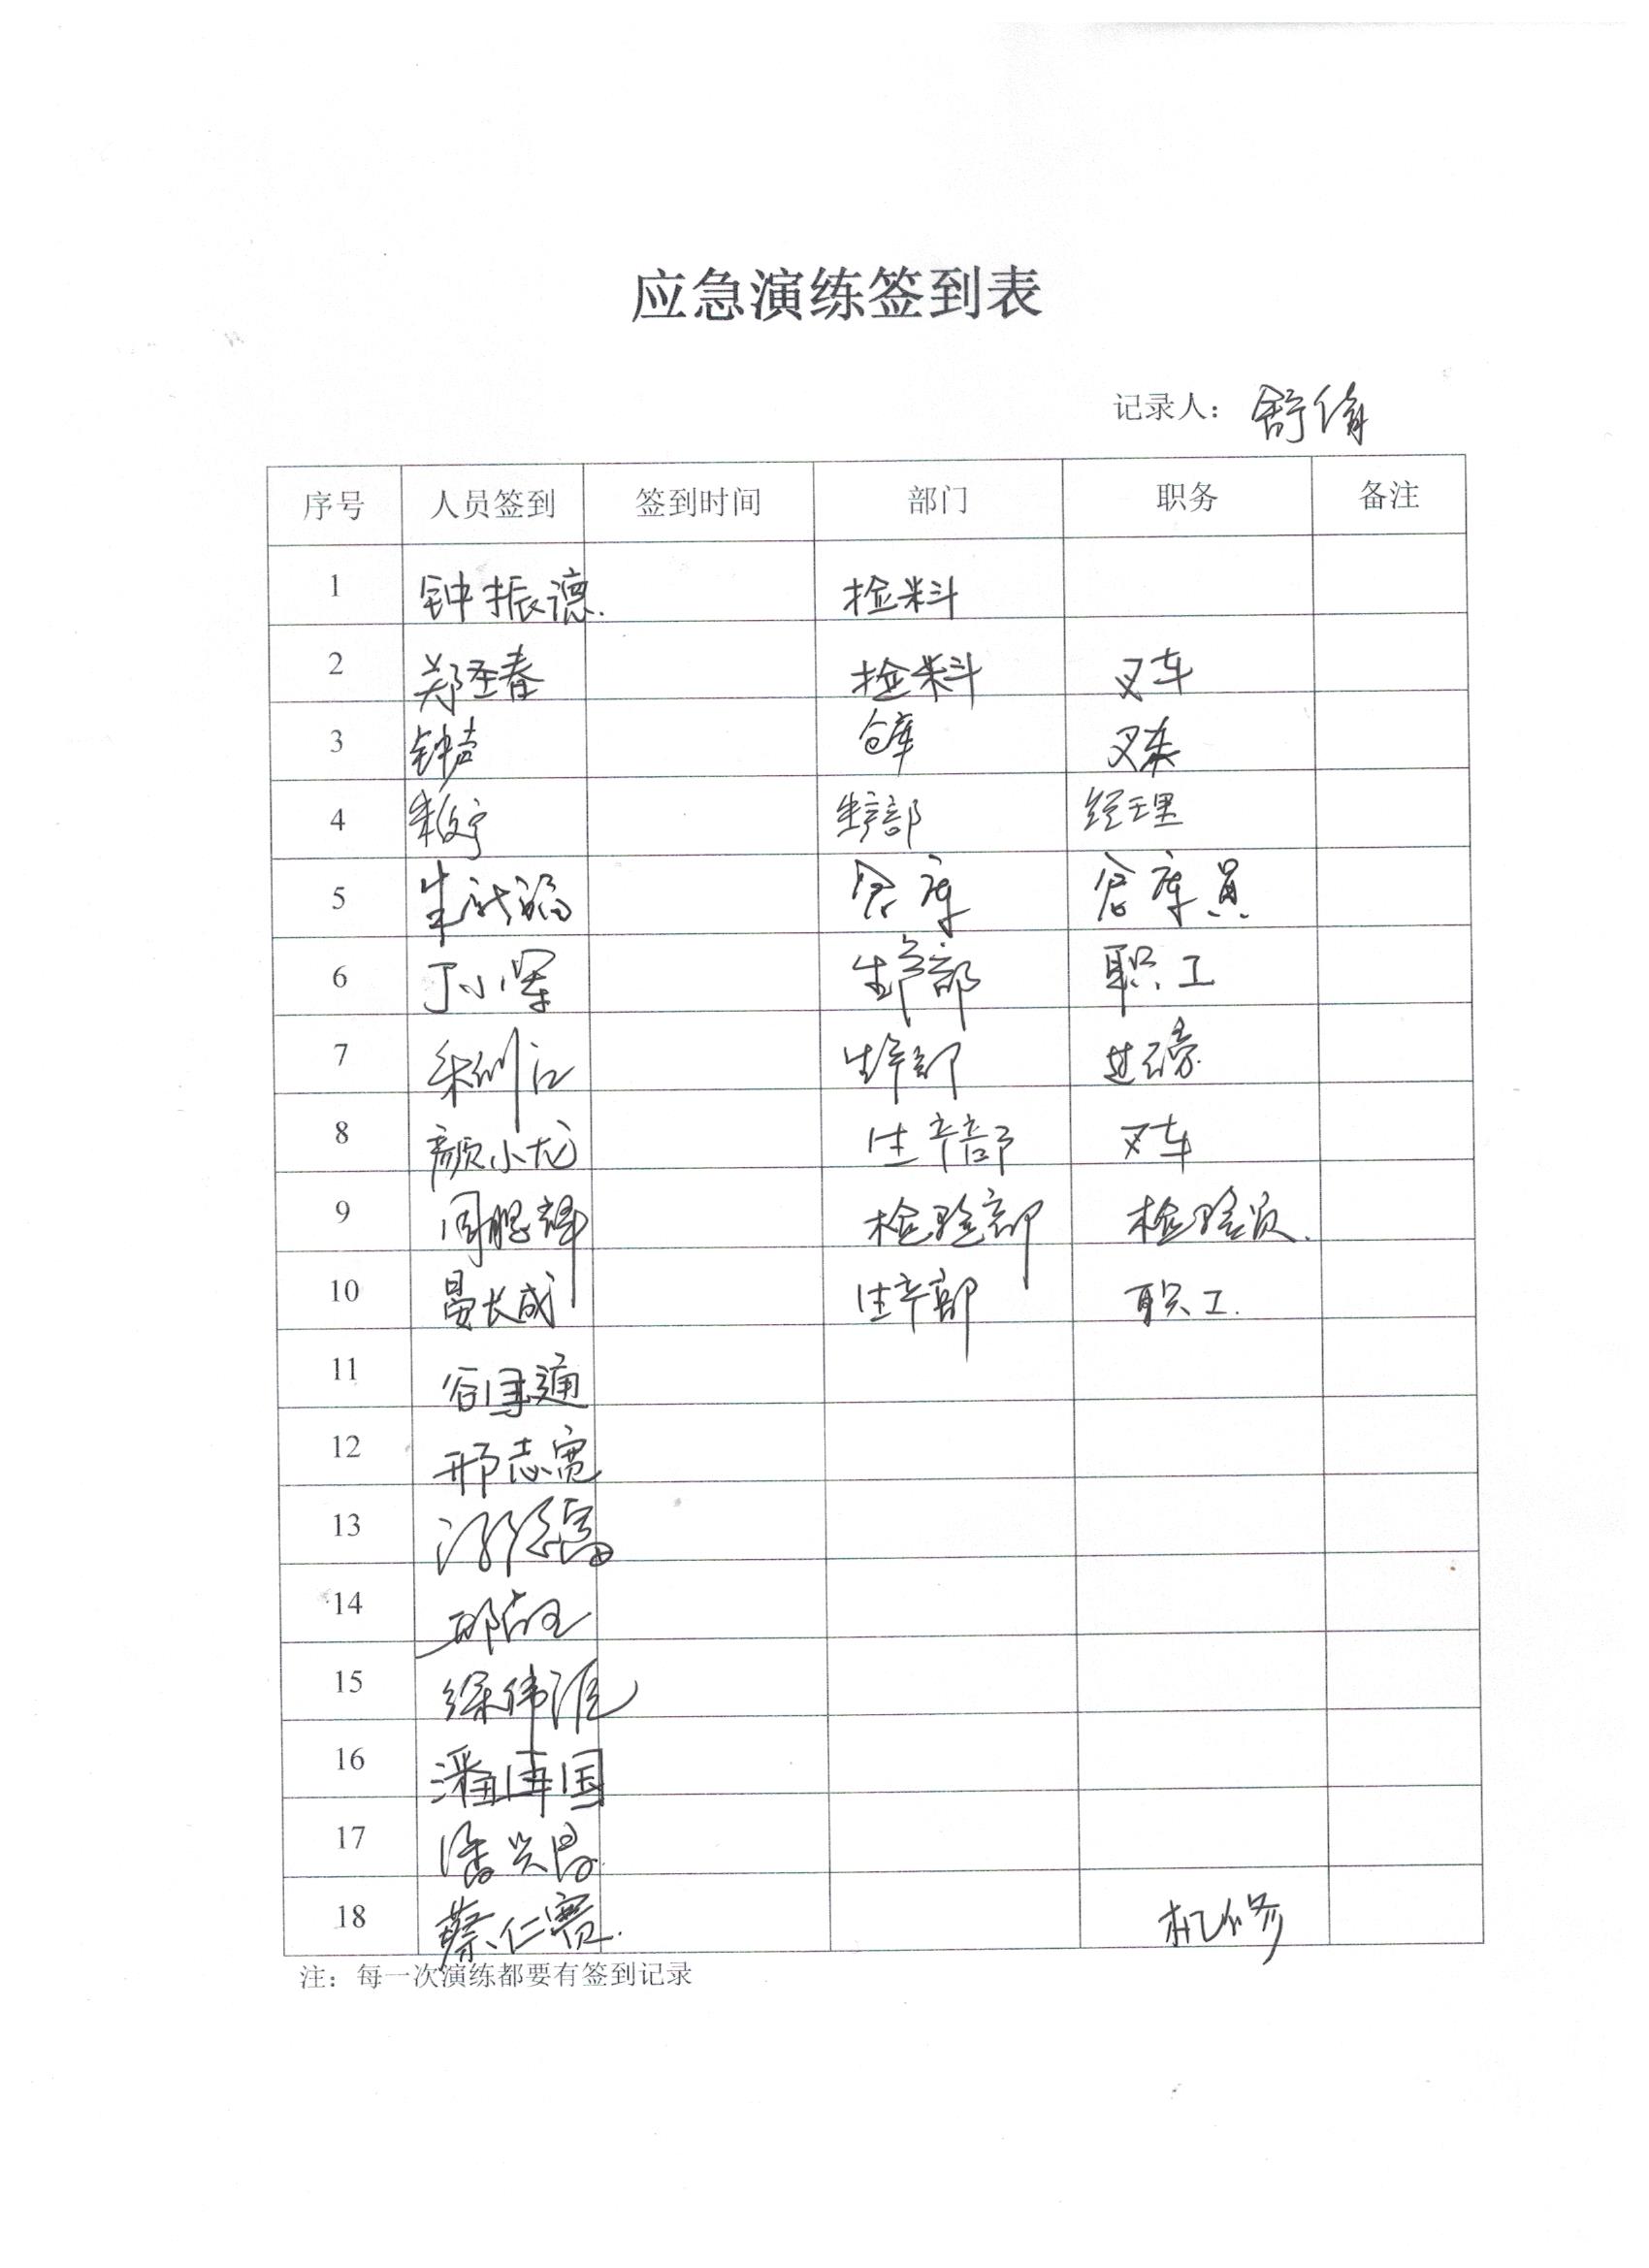 应急演练签到表
记录人：舒倩
序号 人员签到 签到时间 部门 职务 备注
1 钟振德 捡料
2 郑圣春 捡料 叉车
3 钟声 仓库 叉车
4 生产部 经理
5 仓库 仓库员
6 丁小军 生产部 职工
7 生产部 过磅
8 颜小龙 生产部 叉车
9 检验部 检验员
10 晏长成 生产部 职工
11
12 邢志宽
13
14
15
16 潘再国
17 潘兴昌
18 蔡仁赛 机修
注：每一次演练都要有签到记录